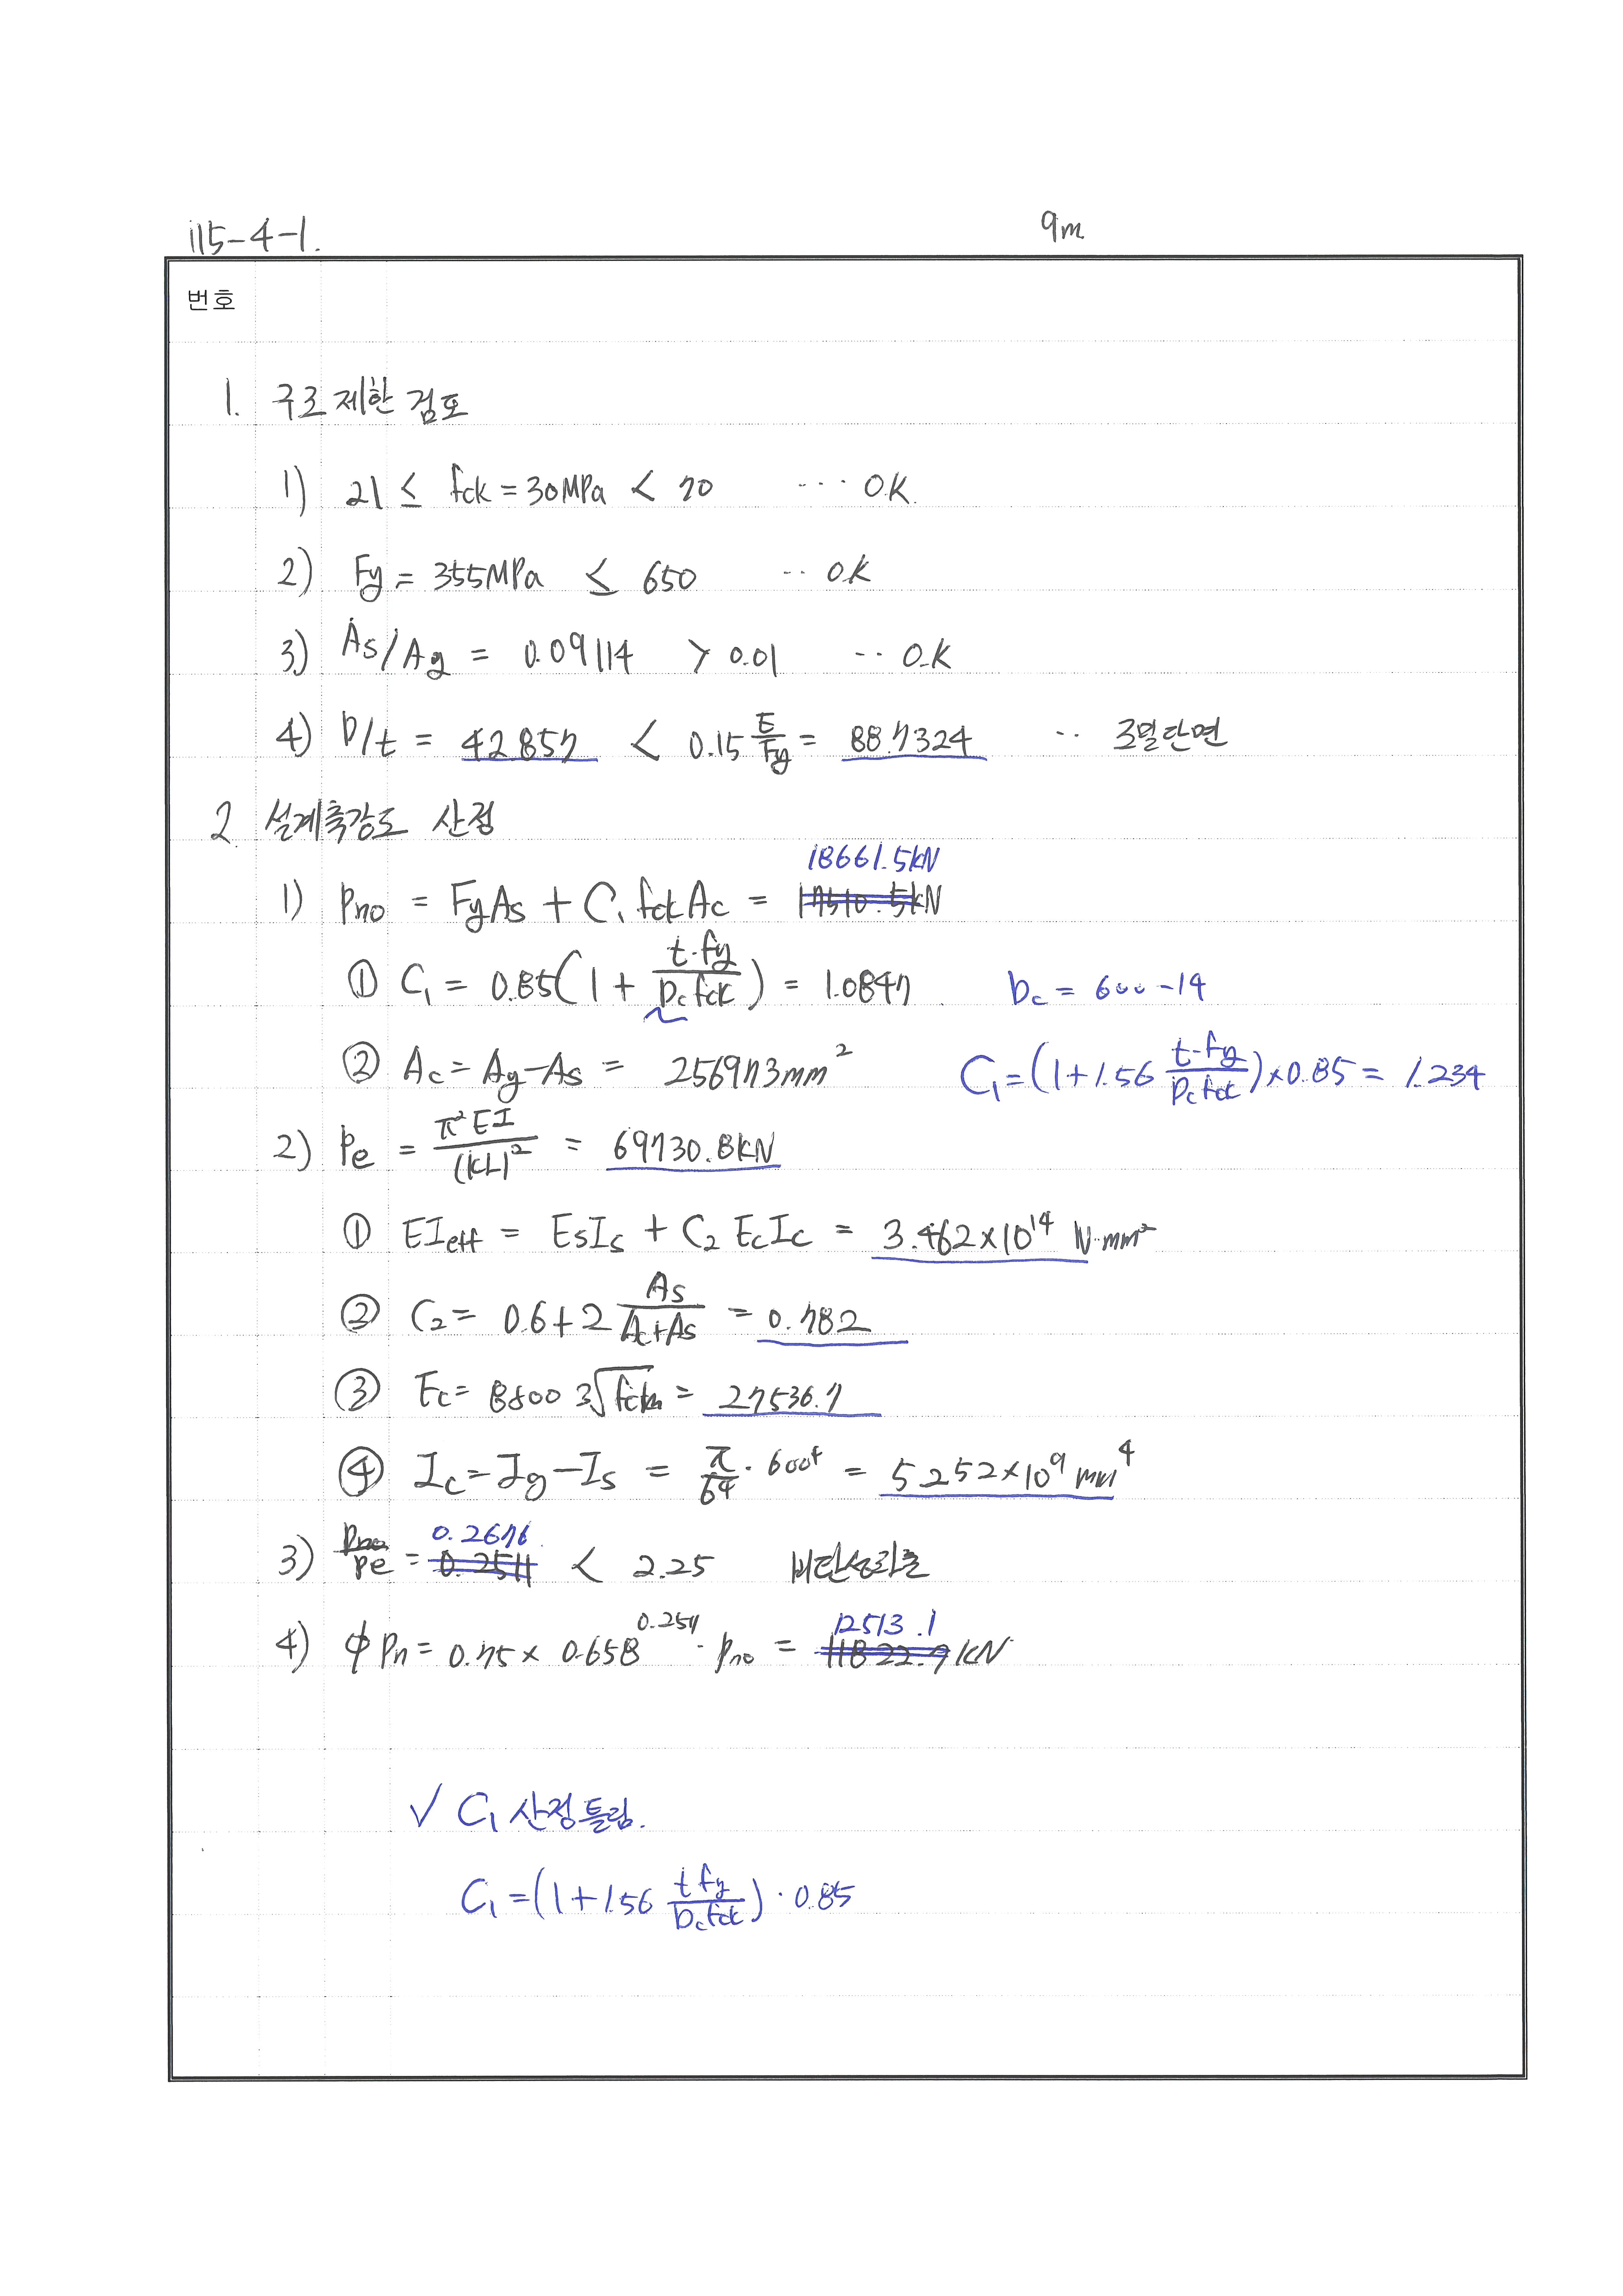 115-4-1. 9m
번호
1. 구조제한 검토
1) 21 ≤ fck = 30MPa < 70 ··· O.K.
2) Fy = 355MPa ≤ 650 ·· O.K
3) As/Ag = 0.09114 > 0.01 ·· O.K
4) D/t = 42.857 < 0.15 E/Fy = 88.7324 ·· 조밀단면
2. 설계축강도 산정
18661.5kN
1) Pno = FyAs + C₁ fck Ac = 17510.5kN
① C₁ = 0.85(1 + t·fy/Dc fck) = 1.0847 Dc = 600-14
② Ac = Ag-As = 256973mm² C₁=(1+1.56 t·fy/Dc fck)×0.85 = 1.234
2) Pe = π²EI/(kL)² = 69730.8kN
① EIeff = EsIs + C₂ EcIc = 3.462×10¹⁴ N·mm²
② C₂ = 0.6+2 As/Ac+As = 0.782
③ Ec= 8500 3√fcm = 27536.7
④ Ic=Ig-Is = π/64 · 600⁴ = 5.252×10⁹ mm⁴
0.2676
3) Pno/Pe = 0.2511 < 2.25 비탄성좌굴
12513.1
4) φPn= 0.75 × 0.658^0.251 · Pno = 11822.7 kN
√ C₁ 산정틀림.
C₁ =(1+1.56 t fy/Dc fck) · 0.85